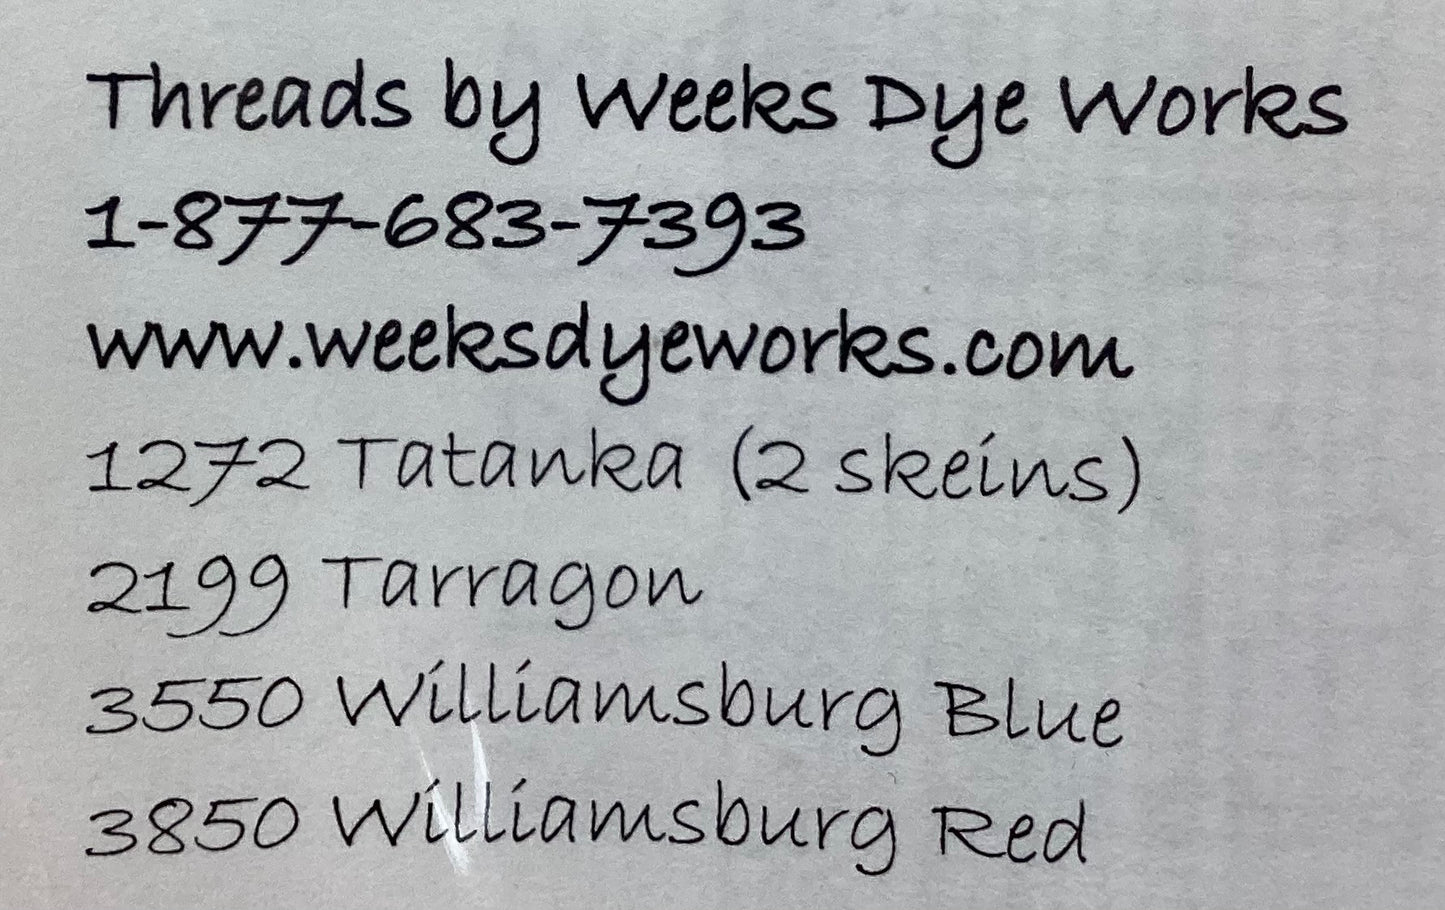 Threads by Weeks Dye Works
1-877-683-7393
www.weeksdyeworks.com
1272 Tatanka (2 skeins)
2199 Tarragon
3550 Williamsburg Blue
3850 Williamsburg Red